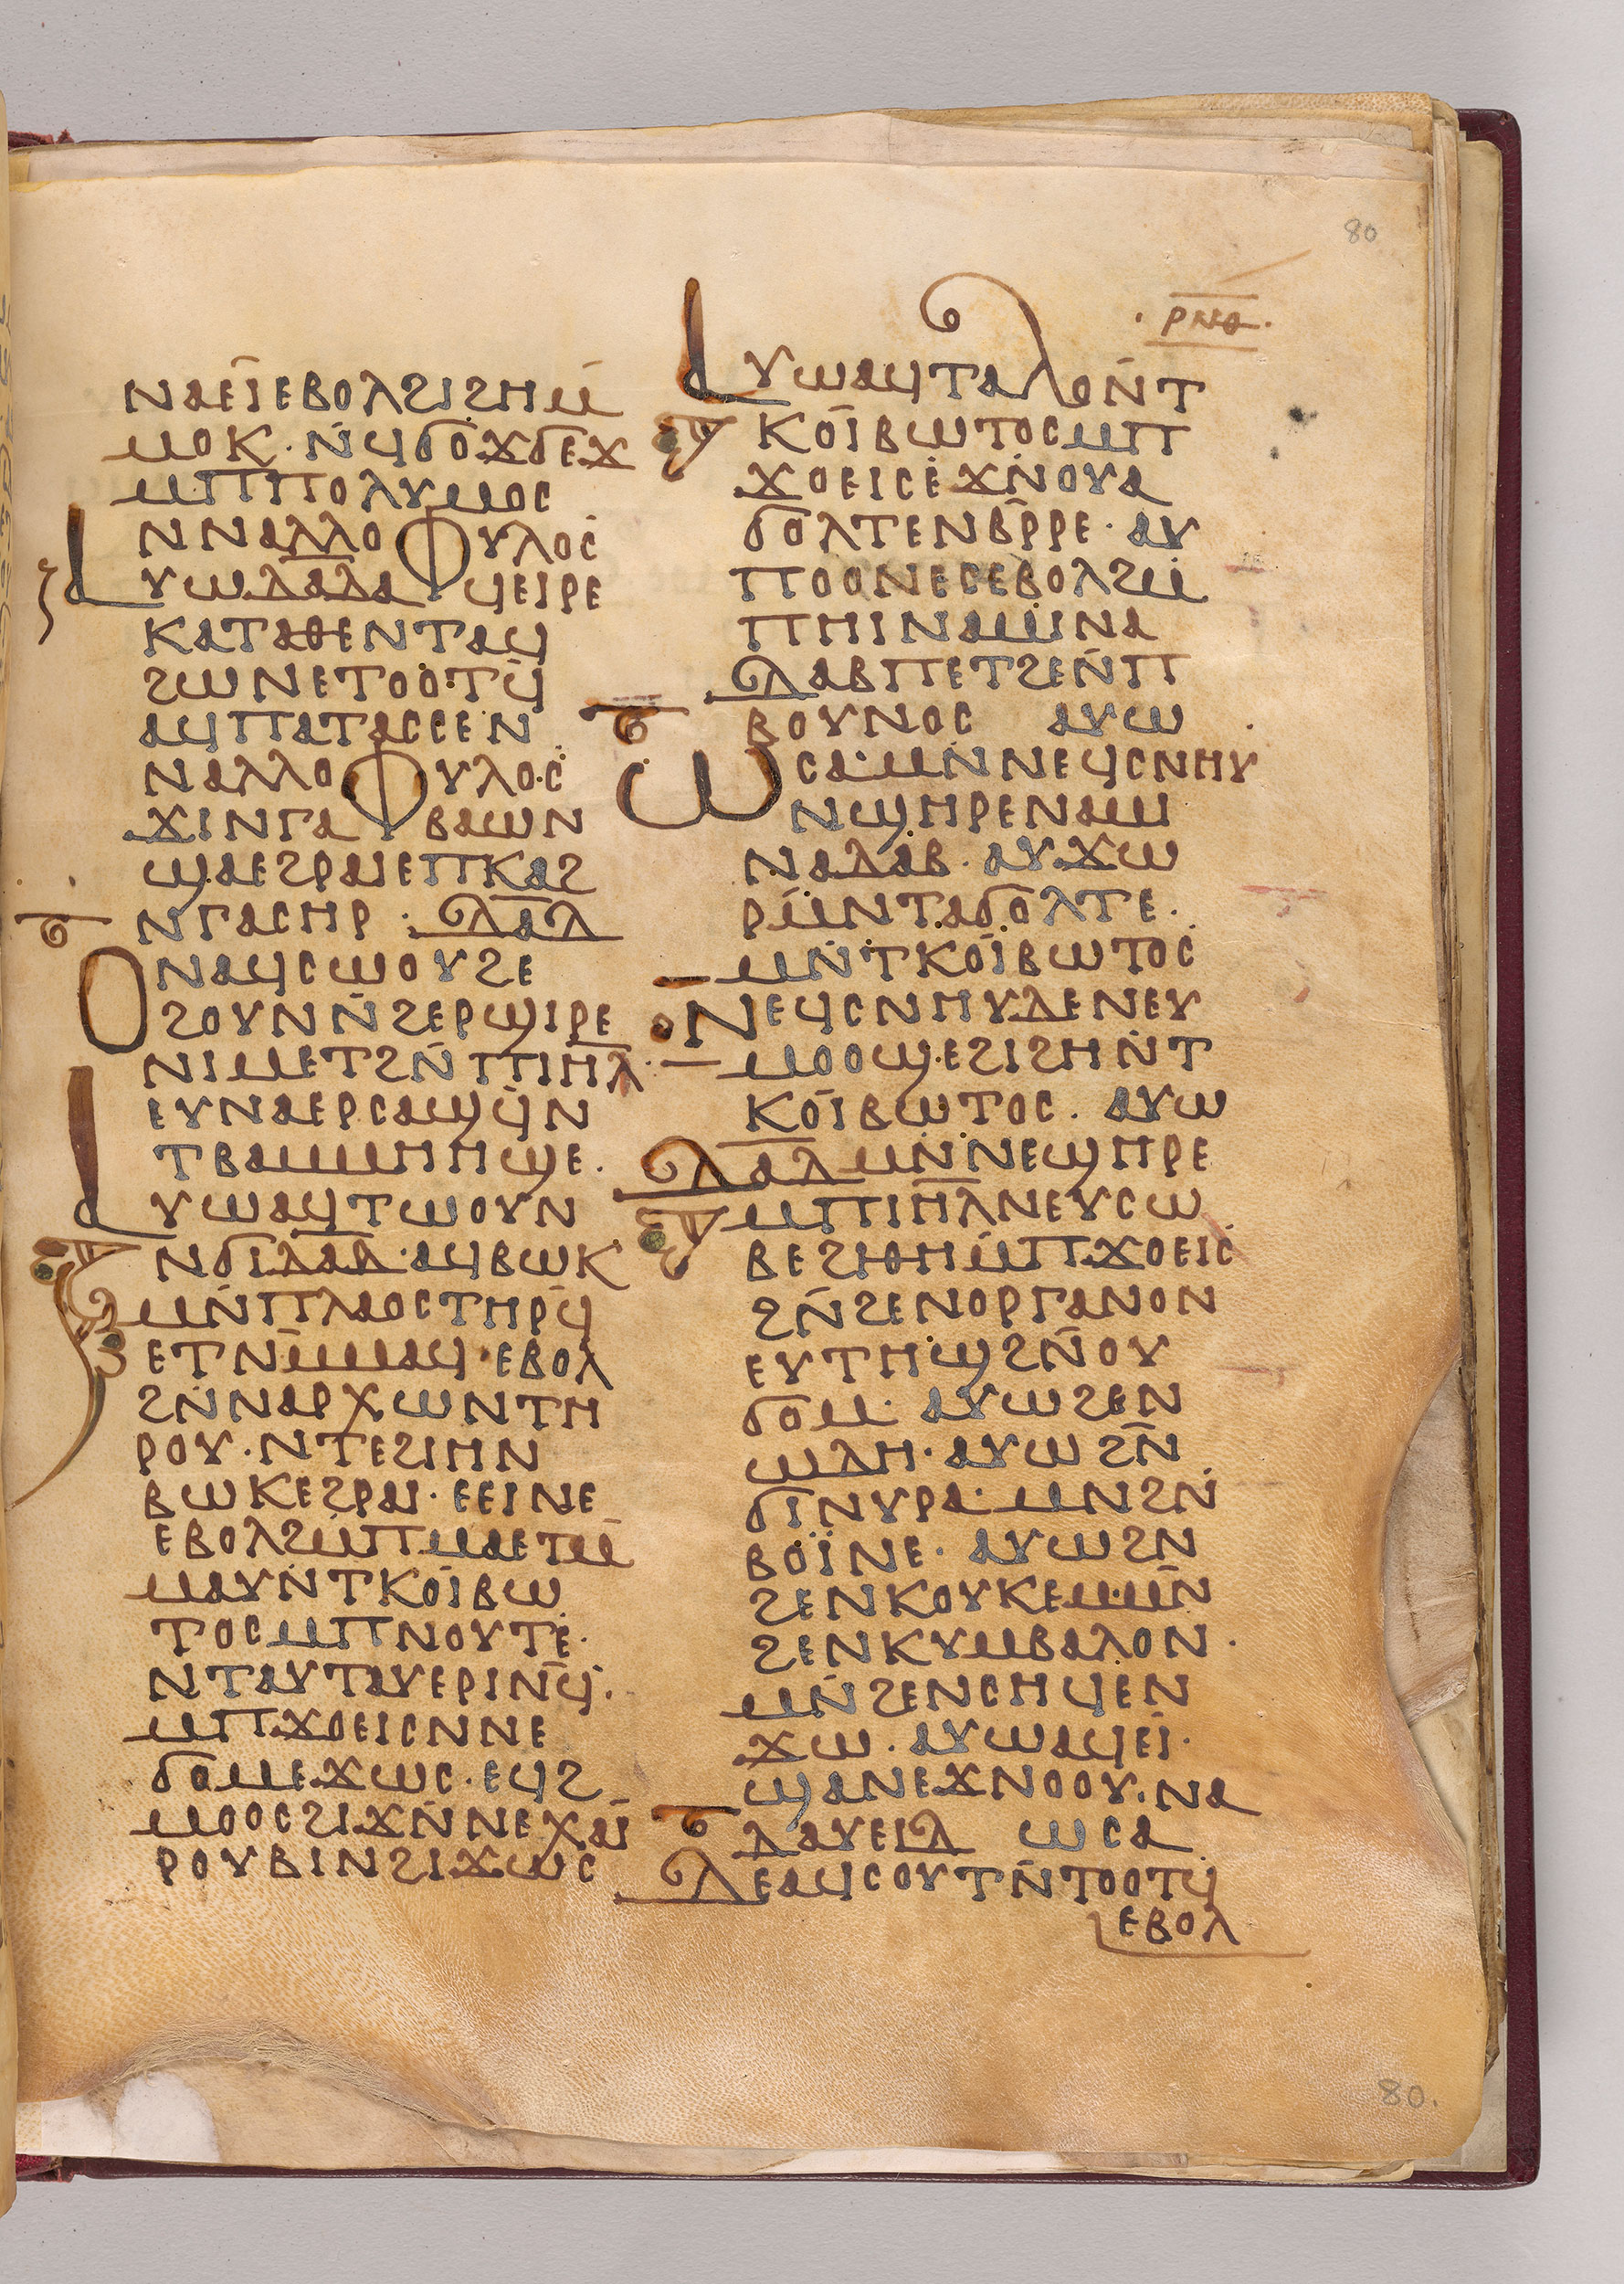 80
ⲣⲛⲑ
ⲛⲁⲉⲓⲉⲃⲟⲗϩⲓϩⲏⲙ̄
ⲙⲟⲕ · ⲛ̄ϥϭⲟϫϭⲉϫ
ⲙⲡⲡⲟⲗⲩⲙⲟⲥ
ⲛⲛⲁⲗⲗⲟⲫⲩⲗⲟⲥ
ⲁⲩⲱⲇⲁ̅ⲇ̅ⲁϥⲉⲓⲣⲉ
ⲕⲁⲧⲁⲑⲉⲛⲧⲁϥ
ϩⲱⲛⲉⲧⲟⲟⲧϥ̄
ⲁϥⲡⲁⲧⲁⲥⲥⲉⲛ
ⲛⲁⲗⲗⲟⲫⲩⲗⲟⲥ
ϫⲓⲛⲅⲁⲫⲃⲁⲱⲛ
ϣⲁⲉϩⲣⲁⲓⲉⲡⲕⲁϩ
ⲛⲅⲁⲥⲏⲣ · ⲇⲁⲇ
ⲟⲛⲁϥⲥⲱⲟⲩϩⲉ
ϩⲟⲩⲛⲛ̄ϩⲉⲣϣⲓⲣⲉ
ⲛⲓⲙⲉⲧϩⲛ̄ⲡⲓⲏ̅ⲗ̅
ⲉⲩⲛⲁⲉⲣⲥⲁϣϥ̄ⲛ
ⲧⲃⲁⲙⲙⲏⲏϣⲉ.
ⲁⲩⲱⲁϥⲧⲱⲟⲩⲛ
ⲛϭⲓⲇⲁ̅ⲇ̅ · ⲁϥⲃⲱⲕ
ⲙⲛ̄ⲡⲗⲁⲟⲥⲧⲏⲣϥ̄
ⲉⲧⲛⲙ̄ⲙⲁϥ · ⲉⲃⲟⲗ
ϩⲛ̄ⲛⲁⲣⲭⲱⲛⲧⲏ
ⲣⲟⲩ · ⲛⲧⲉϩⲓⲏⲛ
ⲃⲱⲕⲉϩⲣⲁⲓ · ⲉⲉⲓⲛⲉ
ⲉⲃⲟⲗϩⲙ̄ⲡⲙⲁⲉⲧⲙ̄
ⲙⲁⲩⲛ̄ⲧⲕⲟⲓ̈ⲃⲱ
ⲧⲟⲥⲙⲡⲛⲟⲩⲧⲉ·
ⲛⲧⲁⲩⲧⲁⲩⲉⲣⲓⲛϥ̄·
ⲙⲡϫⲟⲉⲓⲥⲛⲛⲉ
ϭⲟⲙⲉϫⲱⲥ · ⲉϥϩ
ⲙⲟⲟⲥϩⲓϫⲛ̄ⲛⲉⲭⲁⲓ̈
ⲣⲟⲩⲃⲓⲛϩⲓϫⲱⲥ
ⲁⲩⲱⲁϥⲧⲁⲗⲟⲛ̄ⲧ
ⲕⲟⲓ̈ⲃⲱⲧⲟⲥⲙⲡ
ϫⲟⲉⲓⲥⲉϫⲛ̄ⲟⲩⲁ
ϭⲟⲗⲧⲉⲛⲃ̄ⲣⲣⲉ · ⲁⲩ
ⲡⲟⲟⲛⲉⲥⲉⲃⲟⲗϩⲙ̄
ⲡⲏⲓⲛⲁⲙⲓⲛⲁ
ⲇⲁⲃⲡⲉⲧϩⲉⲛ̄ⲡ
ⲃⲟⲩⲛⲟⲥ ⲁⲩⲱ
ⲱⲥⲁ · ⲙⲛ̄ⲛⲉϥⲥⲛⲏⲩ
ⲛϣⲏⲣⲉⲛⲁⲙ
ⲛⲁⲇⲁⲃ · ⲁⲩϫⲱ
ⲣⲙ̄ⲛⲧⲁϭⲟⲗⲧⲉ·
ⲙⲛ̄ⲧⲕⲟⲓ̈ⲃⲱⲧⲟⲥ
ⲛⲉϥⲥⲛⲏⲩⲇⲉⲛⲉⲩ
ⲙⲟⲟϣ · ⲉϩⲓϩⲏⲛ̄ⲧ
ⲕⲟⲓ̈ⲃⲱⲧⲟⲥ · ⲁⲩⲱ
ⲇⲁ̅ⲇ̅ⲙⲛ̄ⲛⲉϣⲏⲣⲉ
ⲙⲡⲓⲏ̅ⲗ̅ⲛⲉⲩⲥⲱ
ⲃⲉϩⲓⲑⲏⲙ̄ⲡϫⲟⲉⲓⲥ
ϩⲛ̄ϩⲉⲛⲟⲣⲅⲁⲛⲟⲛ
ⲉⲩⲧⲏϣϩⲛ̄ⲟⲩ
ϭⲟⲙ · ⲁⲩⲱϩⲉⲛ
ⲱⲇⲏ · ⲁⲩⲱϩⲛ̄
ϭⲓⲛⲩⲣⲁ · ⲙⲛϩⲛ̄
ⲃⲟⲓ̈ⲛⲉ · ⲁⲩⲱϩⲛ
ϩⲉⲛⲕⲟⲩⲕⲉⲙ·ⲙⲛ̄
ϩⲉⲛⲕⲩⲙⲃⲁⲗⲟⲛ·
ⲙⲛ̄ϩⲉⲛⲥⲏϥⲉⲛ
ϫⲱ · ⲁⲩⲱⲁϥⲉⲓ·
ϣⲁⲛⲉϫⲛⲟⲟⲩ · ⲛⲁ
ⲇⲁⲩⲉⲓⲇ ⲱⲥⲁ
ⲇⲉⲁϥⲥⲟⲩⲧⲛ̄ⲧⲟⲟⲧϥ
ⲉⲃⲟⲗ
80.